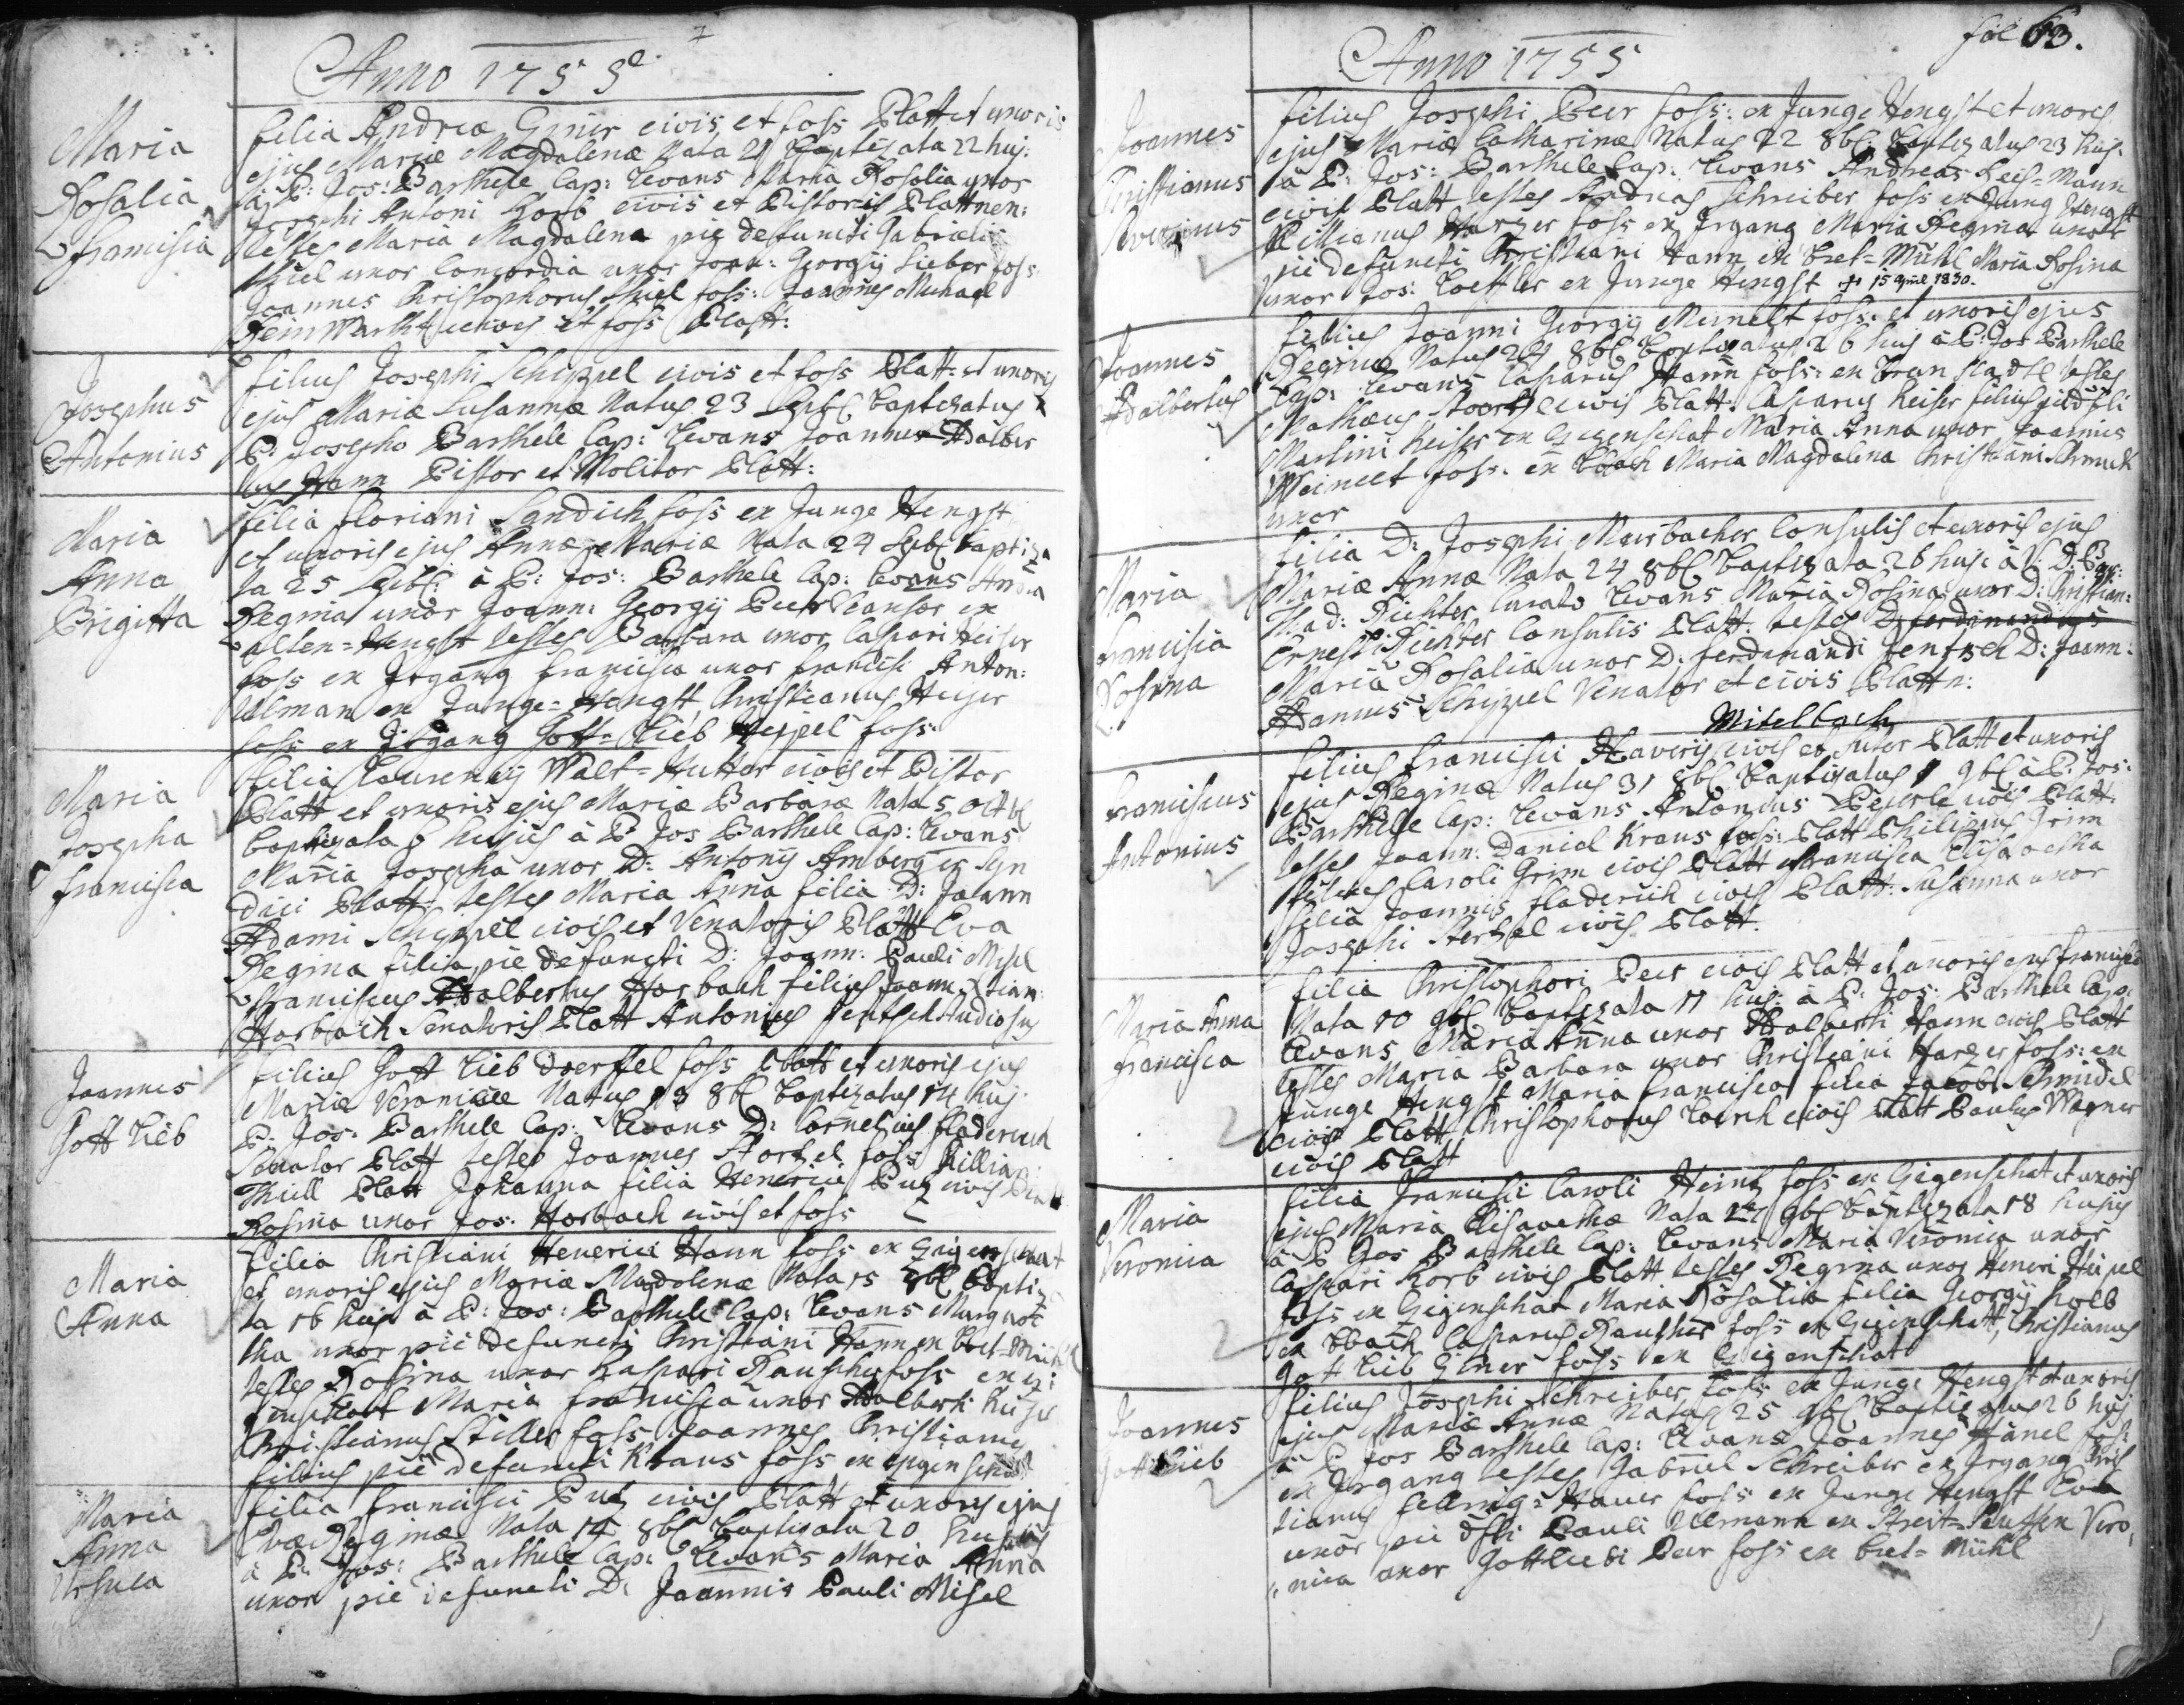 Anno 1755
Maria
Rosalia
Francisca
filia Andreæ Giner civis et foss Platt et uxoris
ejus Mariæ Magdalenæ Nata 21 Baptizata 22 huj:
à P: Jos: Barthele Cap: Levans Maria Rosalia uxor
Josephi Antoni Korb civis et Pistoris Plattnen:
testes Maria Magdalena pie defuncti Gabrielis
Thiel uxor Concordia uxor Joan: Georgij Lieber foss:
Joannes Christophorus Thiel foss: Joannes Michael
civis et foss Platt:
Josephus
Antonius
filius Josephi Schippel civis et foss Platt: et uxoris
ejus Mariæ Susannæ Natus 23 Baptizatus
P: Josepho Barthele Cap: Levans Joannes Adalber
tus Hann Pistor et Molitor Platt:
Maria
Anna
Brigitta
filia Floriani foss ex Junge Hengst
et uxoris ejus Annæ Mariæ Nata 24 baptiza
ta 25 à P: Jos: Barthele Cap: levans Anna
Regina uxor Joann: Georgij Peer ex
alten=Hengst testes Barbara uxor Caspari
foss ex Irgang francisca uxor francisci Anton:
Ulman ex Junge=Hengst Christianus
foss ex Irgang Gott=lieb foss:
Maria
Josepha
Francisca
filia Laurentij Walt=Hutter civis et Pistor
Platt et uxoris ejus Mariæ Barbaræ Nata 5
baptizata 6 hujus à P Jos Barthele Cap: Levans
Maria Josepha uxor D: Antonij Amberger Syn
dici Platt: testes Maria Anna filia D: Joann
Adami Schippel civis et Venatoris Platt Eva
Regina filia pie defuncti D: Joann: Pauli Misel
Franciscus Adalbertus Horbach filius Joann:
Horbach Senatoris Platt Antonius Jentsch Studiosus
Joannes
Gott Lieb
filius Gott Lieb Doerffel foss Platt et uxoris ejus
Mariæ Veronicæ Natus 13 8bl baptizatus 14 huj:
P: Jos: Barthele Cap: Levans D: Cornelius Fladerich
Senator Platt testes Joannes foss Killian
Thiell Platt Johanna filia Henrici Putz civis
Rosina uxor Jos: Horbach civis et foss
Maria
Anna
filia Christiani Henerici Hann foss ex Geigenschat
et uxoris ejus Mariæ Magdalenæ Nata 15 8bl Baptiza
ta 16 huj à P: Jos: Barthele Cap: Levans Margare
tha uxor pie defuncti Christiani Hann ex Bret=Mühl
testes Rosina uxor Kaspari Rauscher foss ex gei
genschatt Maria francisca uxor Adalberti
Christianus Stiller foss Joannes Christianus
filius pie defuncti Kraus foss ex geigenschatt
Maria
Anna
Ursula
filia francisci Putz civis Platt et uxoris ejus
Evæ Reginæ Nata 19 8bl baptizata 20 hujus
à P: Jos: Barthele Cap: Levans Maria Anna
uxor pie defuncti D: Joannis Pauli Misel
fol 63.
Anno 1755
Joannes
Christianus
Severinus
filius Josephi Peer foss: ex Junge Hengst et uxoris
ejus Mariæ Catharinæ Natus 22 8bl: baptizatus 23 huj:
à P: Jos: Barthele Cap: Levans Andreas
civis Platt testes Andreas Schreiber foss ex Jung Hengst
Killianus Harzer foss ex Irgang Maria Regina uxor
pie defuncti Christiani Hann ex Bret=Mühl Maria Rosina
uxor Jos: Loeffler ex Junge Hengst + 15 April 1830.
Joannes
Adalbertus
filius Joanni Georgij Meinelt foss: et uxoris ejus
Reginæ Natus 24 8bl baptizatus 26 huj à P: Jos Barthele
Cap: Levans Casparus Hann foss: ex testes
Mathæus civis Platt: Casparus Keiser filius
Martini Keiser ex Geigenschat Maria Anna uxor Joannis
Weinelt foss: ex Maria Magdalena Christiani
uxor
Maria
Francisca
Rosina
filia D: Josephi Meirbacher Consulis et uxoris ejus
Mariæ Annæ Nata 24 8bl baptizata 26 huj: à
Thad: Richter Curato Levans Maria Rosina uxor D: Christian:
Ernesti Richter Consulis Platt: testes
Maria Rosalia uxor D: Ferdinandi Jentsch D: Joann:
Adamus Schippel Venator et civis Plattn:
Franciscus
Antonius
Mitelbach
filius francisci Xaverij civis et Sutor Platt et uxoris
ejus Reginæ Natus 31 8bl baptizatus 1 9bl à P: Jos:
Barthele Cap: Levans Antonius civis Platt:
testes Joann: Daniel Kraus foss: Platt Philippus Grim
filius Caroli Grim civis Platt francisca Elisabetha
filia Joannis Fladerich civis Platt: Susanna uxor
Josephi civis Platt.
Maria Anna
Francisca
filia Christophori Peer civis Platt et uxoris ejus franciscæ
Nata 10 9bl baptizata 11 huj: à P: Jos: Barthele Cap:
Levans Maria Anna uxor Adalberti Hann civis Platt
testes Maria Barbara uxor Christiani Harzer foss: ex
Junge Hengst Maria francisca filia Jacobi Schmidel
civis Platt Christophorus civis Platt Paulus Wagner
civis Platt
Maria
Veronica
filia francisci Caroli Heintz foss ex Geigenschat et uxoris
ejus Maria Elisabethæ Nata 17 9bl baptizata 18 hujus
à P Jos Barthele Cap: Levans Maria Veronica uxor
Caspari Korb civis Platt testes Regina uxor Henrici
foss ex Geigenschat Maria Rosalia filia Georgij Kolb
ex Casparus Rauscher foss ex Geigenschatt, Christianus
Gottlieb Giner foss ex Geigenschat
Joannes
Gottlieb
filius Josephi Schreiber foss ex Junge Hengst et uxoris
ejus Mariæ Annæ Natus 25 9bl baptizatus 26 huj
à P Jos Barthele Cap: Levans Joannes Hänel foss:
ex Irgang testes Gabriel Schreiber ex Irgang Chris
tianus Hauer foss ex Junge Hengst Eva
uxor pie Pauli Ullmann ex Vero,
nica uxor Gottliebi Peer foss ex Bret=Mühl